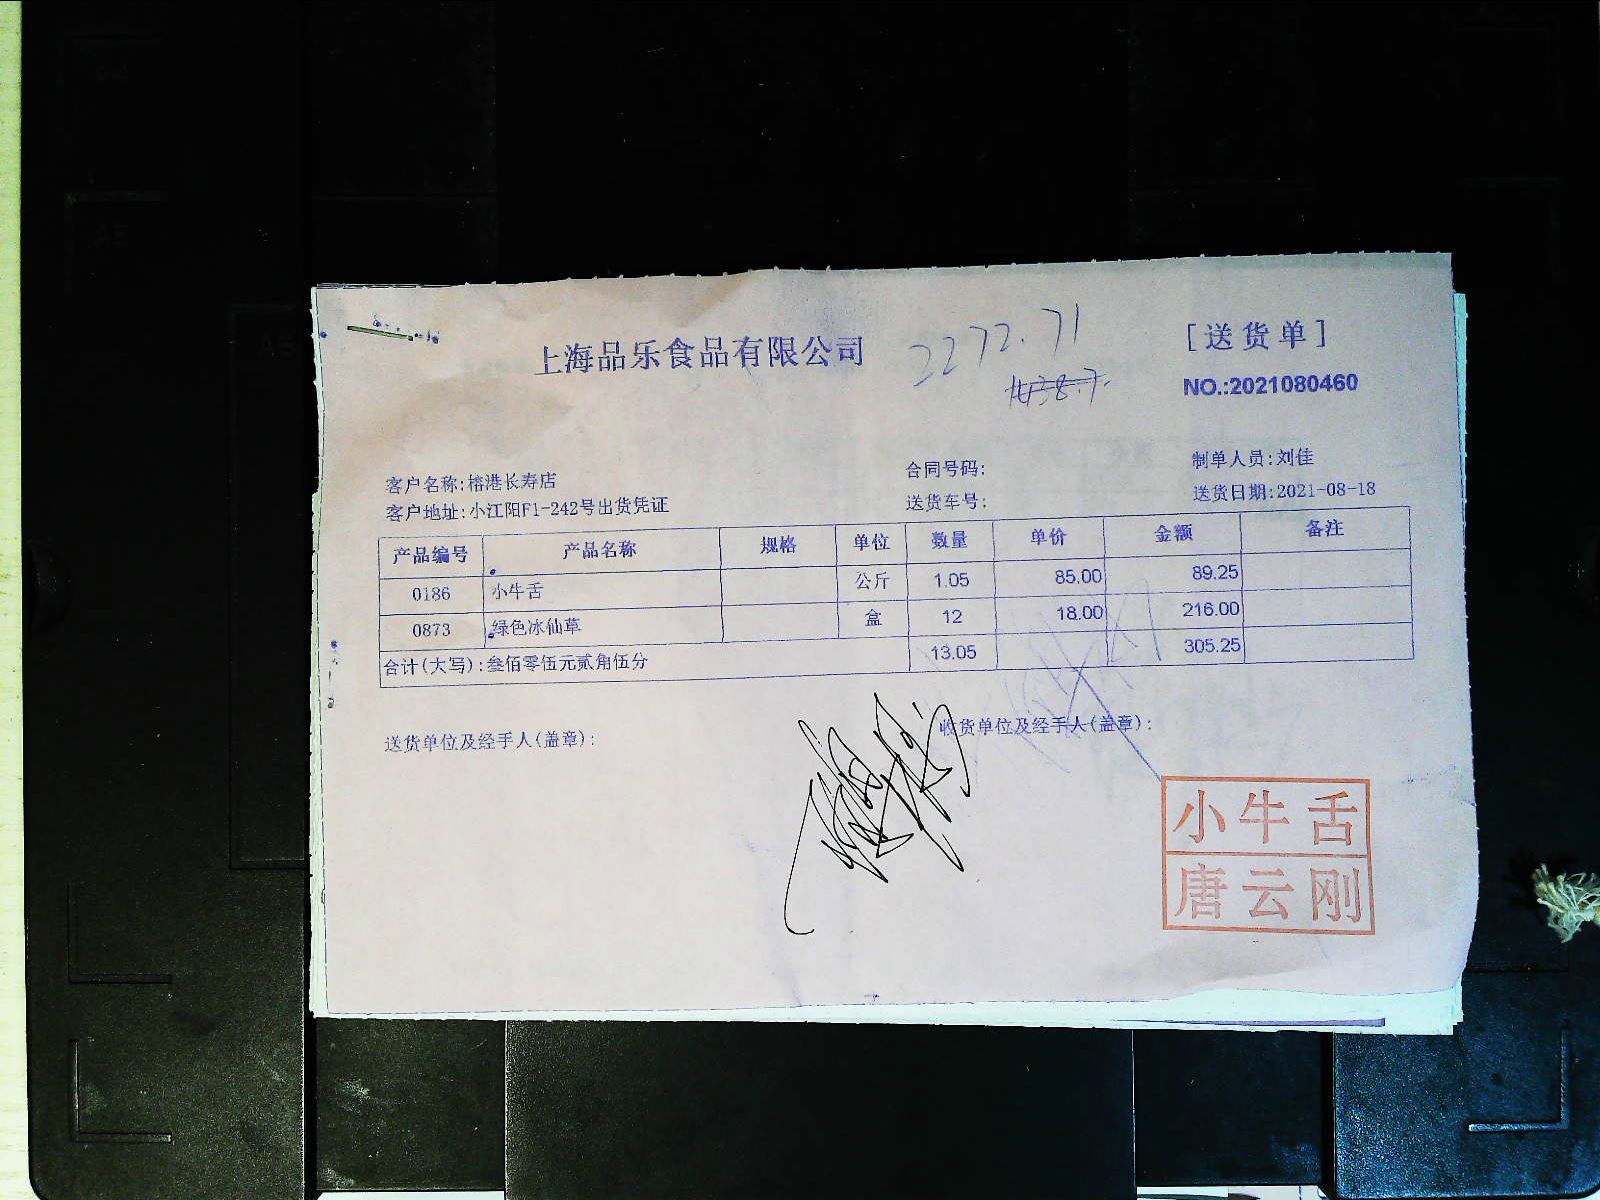 上海品乐食品有限公司
2272.71
[送货单]
NO.:2021080460
客户名称:榕港长寿店
合同号码:
制单人员:刘佳
客户地址:小江阳F1-242号出货凭证
送货车号:
送货日期:2021-08-18
产品编号 产品名称 规格 单位 数量 单价 金额 备注
0186 小牛舌 公斤 1.05 85.00 89.25
0873 绿色冰仙草 盒 12 18.00 216.00
合计(大写):叁佰零伍元贰角伍分 13.05 305.25
送货单位及经手人(盖章):
收货单位及经手人(盖章):
小牛舌
唐云刚